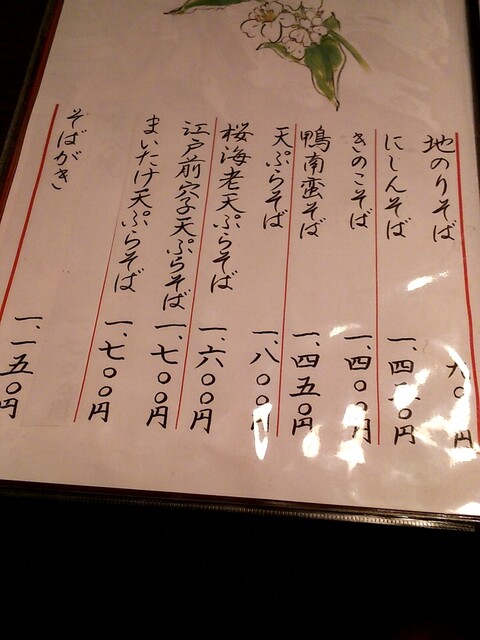 地のりそば 円
にしんそば 円
きのこそば 一、四〇〇円
鴨南蛮そば 一、四五〇円
天ぷらそば 一、八〇〇円
桜海老天ぷらそば 一、六〇〇円
江戸前穴子天ぷらそば 一、七〇〇円
まいたけ天ぷらそば 一、七〇〇円
そばがき 一、一五〇円